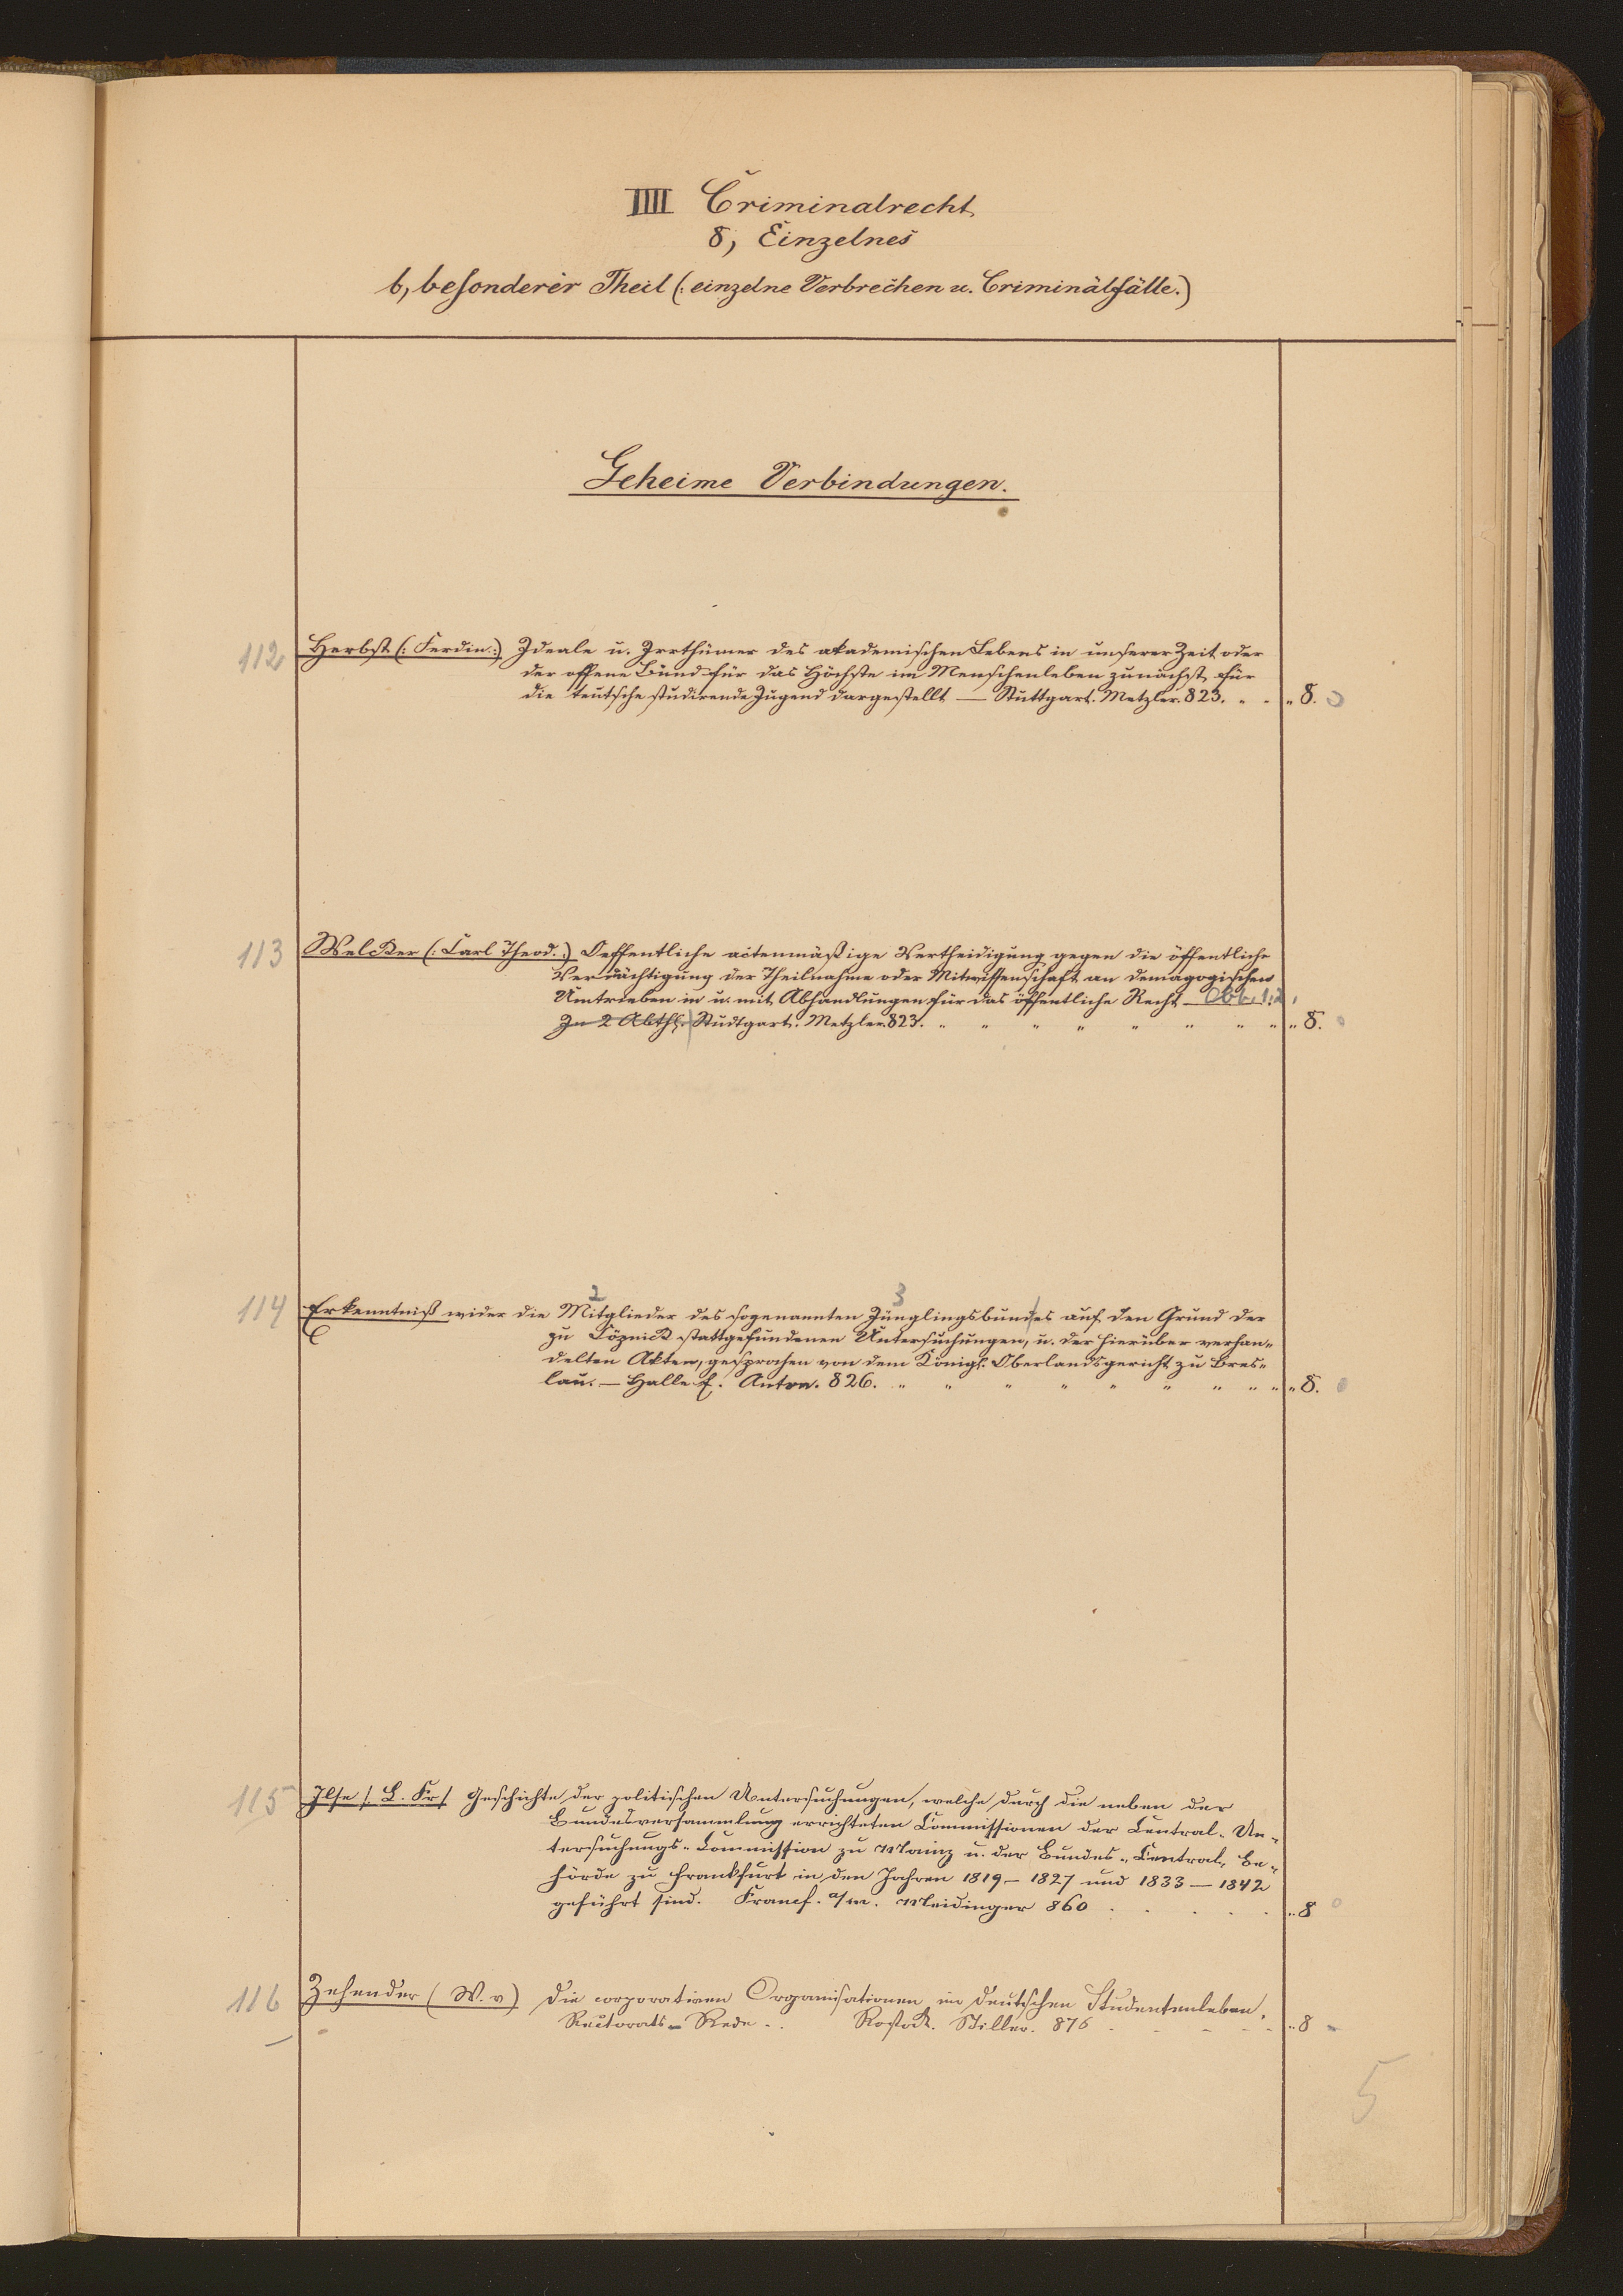 IIII Criminalrecht
8, Einzelnes
b, besonderer Theil (: einzelne Verbrechen u. Criminalfälle.)
Geheime Verbindungen.
112 Herbst (: Ferdin:) Ideale u. Irrthümer des akademischen Lebens in unserer Zeit oder
der offene Bund für das Höchste im Menschenleben zunächst für
die teutsche studirende Jugend dargestellt — Stuttgart. Metzler. 823. „ „ „ 8.
113 Welcker (: Carl Theod. :) Oeffentliche actenmäßige Vertheidigung gegen die öffentliche
Verdächtigung der Theilnahme oder Mitwissenschaft an demagogischen
Umtrieben in u. mit Abhandlungen für das öffentliche Recht — Abt. 1.2.
In 2 Abthl. Studtgart. Metzler. 823. „ „ „ „ „ „ „ „ „ 8.
2 3
114 Erkenntniß wider die Mitglieder des sogenannten Jünglingsbundes auf den Grund der
zu Cöpnick stattgefundenen Untersuchungen, u. der hierüber verhan-
delten Akten, gesprochen von dem Königl. Oberlandsgericht zu Bres-
lau. — Halle. Anton. 826. „ „ „ „ „ „ „ „ „ „ 8.
115 Ilse /: L. Fr / Geschichte der politischen Untersuchungen, welche durch die neben der
Bundesversammlung errichteten Commissionen der Central-Un-
tersuchungs-Commission zu Mainz u. der Bundes-Central-Be-
hörde zu Frankfurt in den Jahren 1819 — 1827 und 1833 — 1842
geführt sind. Francf. a/m. Meidinger 860 . . . . . „ 8
116 Zehender (W. v) Die corporativen Organisationen im deutschen Studentenleben,
Rectorats-Rede . . Rostock. Stiller. 876 . . . . . „ 8
5